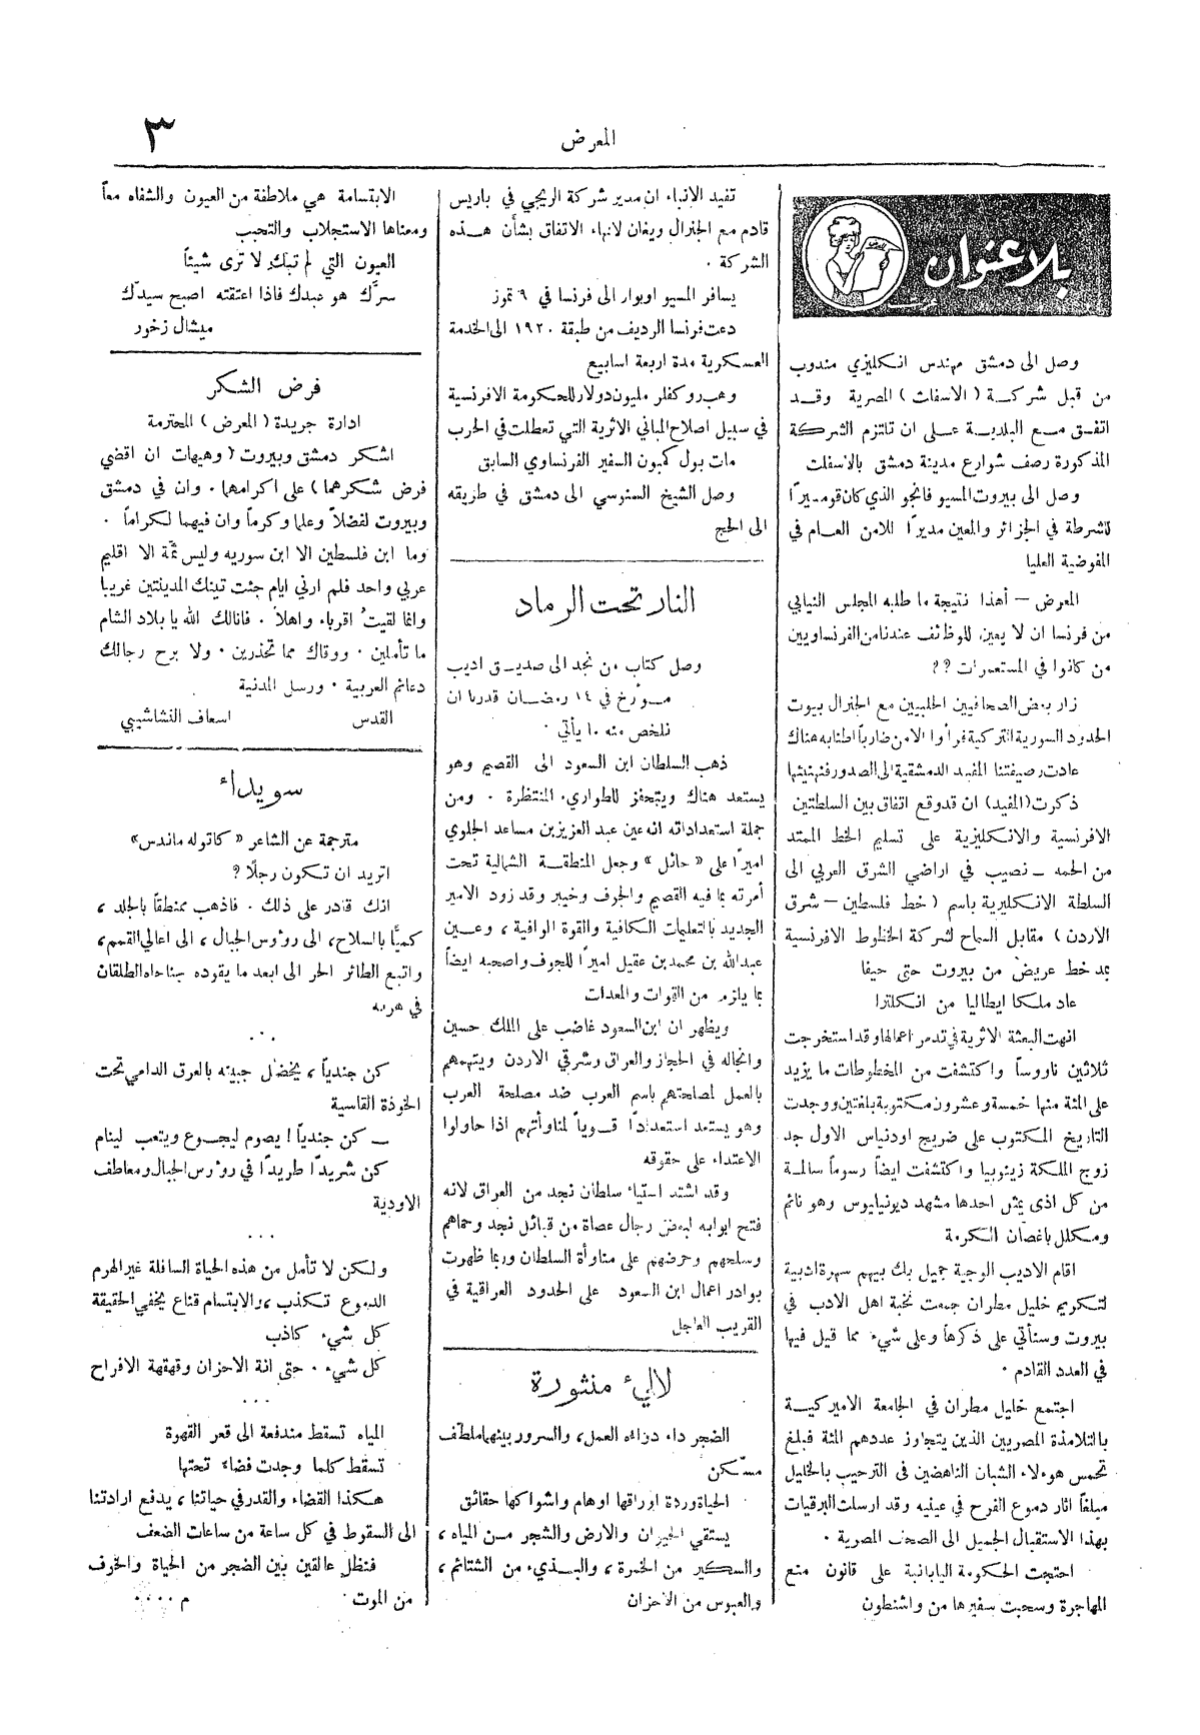 المعرض
٣
بلا عنوان
وصل الى دمشق مهندس انكليزي مندوب
من قبل شركة ( الاسفات ) المصرية وقد
اتفق مع البلدية على ان تلتزم الشركة
المذكورة رصف شوارع مدينة دمشق بالاسفلت
وصل الى بيروت المسيو فانجو الذي كان قوميرًا
للشرطة في الجزائر والمعين مديرًا للامن العام في
المفوضية العليا
المعرض – أهذا نتيجة ما طلبه المجلس النيابي
من فرنسا ان لا يعين للوظائف عندنا من الفرنساويين
من كانوا في المستعمرات ؟؟
زار بعض الصحافيين الحلبيين مع الجنرال بيوت
الحدود السورية التركية فرأوا الامن ضارباً اطنابه هناك
عادت رصيفتنا المفيد الدمشقية الى الصدور فنهنئها
ذكرت (المفيد) ان قد وقع اتفاق بين السلطتين
الافرنسية والانكليزية على تسليم الخط الممتد
من الحمه – نصيب في اراضي الشرق العربي الى
السلطة الانكليزية باسم ( خط فلسطين – شرق
الاردن ) مقابل السماح لشركة الخطوط الافرنسية
بمد خط عريض من بيروت حتى حيفا
عاد ملكا ايطاليا من انكلترا
انهت البعثة الاثرية في تدمر اعمالها وقد استخرجت
ثلاثين ناووساً واكتشفت من المخطوطات ما يزيد
على المئة منها خمسة وعشرون مكتوبة بلغتين ووجدت
التاريخ المكتوب على ضريح اودنياس الاول جد
زوج الملكة زينوبيا واكتشفت ايضاً رسوماً سالمة
من كل اذى يمثل احدها مشهد ديونيايوس وهو نائم
ومكلل باغصان الكرمة
اقام الاديب الوجيه جميل بك بيهم سهرة ادبية
لتكريم خليل مطران جمعت نخبة اهل الادب في
بيروت وسنأتي على ذكرها وعلى شيء مما قيل فيها
في العدد القادم ٠
اجتمع خليل مطران في الجامعة الاميركية
بالتلامذة المصريين الذين يتجاوز عددهم المئة فبلغ
تحمس هوءلاء الشبان الناهضين في الترحيب بالخليل
مبلغاً اثار دموع الفرح في عينيه وقد ارسلت البرقيات
بهذا الاستقبال الجميل الى الصحف المصرية ٠
احتجت الحكومة اليابانية على قانون منع
المهاجرة وسحبت سفيرها من واشنطون
تفيد الانباء ان مدير شركة الريجي في باريس
قادم مع الجنرال ويغان لانهاء الاتفاق بشأن هذه
الشركة ٠
يسافر المسيو اوبوار الى فرنسا في ٩ تموز
دعت فرنسا الرديف من طبقة ١٩٢٠ الى الخدمة
العسكرية مدة اربعة اسابيع
وهب روكفلر مليون دولار للحكومة الافرنسية
في سبيل اصلاح المباني الاثرية التي تعطلت في الحرب
مات بول كمبون السفير الفرنساوي السابق
وصل الشيخ السنوسي الى دمشق في طريقه
الى الحج
النار تحت الرماد
وصل كتاب من نجد الى صديق اديب
مورّخ في ١٤ رمضان قدرنا ان
نلخص منه ما يأتي ٠
ذهب السلطان ابن السعود الى القصيم وهو
يستعد هناك ويتحفز للطواريء المنتظرة ٠ ومن
جملة استعداداته انه عين عبد العزيز بن مساعد الجلوي
اميرًا على « حائل » وجعل المنطقة الشمالية تحت
أمرته بما فيه القصيم والجوف وخيبر وقد زود الامير
الجديد بالتعليمات الكافية والقوة الوافية ، وعين
عبدالله بن محمد بن عقيل اميرًا للجوف واصحبه ايضاً
بما يلزم من القوات والمعدات
ويظهر ان ابن السعود غاضب على الملك حسين
وانجاله في الحجاز والعراق وشرقي الاردن ويتهمهم
بالعمل لمصلحتهم باسم العرب ضد مصلحة العرب
وهو يستعد استعدادًا قوياً لمناوأتهم اذا حاولوا
الاعتداء على حقوقه
وقد اشتد استياء سلطان نجد من العراق لانه
فتح ابوابه لبعض رجال عصاة من قبائل نجد وحماهم
وسلحهم وحرضهم على مناوأة السلطان وربما ظهرت
بوادر اعمال ابن السعود على الحدود العراقية في
القريب العاجل
لاليء منثورة
الضجر داء دواءه العمل، والسرور بينهما ملطف
مسّكن
الحياة وردة اوراقها اوهام واشواكها حقائق
يستقي الحيوان والارض والشجر من المياه ،
والسكير من الخمرة ، والبذيء من الشتائم ،
والعبوس من الاحزان
الابتسامة هي ملاطفة من العيون والشفاه معاً
ومعناها الاستجلاب والتحبب
العيون التي لم تبكِ لا ترى شيئاً
سرَّك هو عبدك فاذا اعتقته اصبح سيدك
ميشال زخور
فرض الشكر
ادارة جريدة ( المعرض ) المحترمة
اشكر دمشق وبيروت ( وهيهات ان اقضي
فرض شكرهما ) على اكرامهما ٠ وان في دمشق
وبيروت لفضلاً وعلما وكرماً وان فيهما لكراماً ٠
وما ابن فلسطين الا ابن سوريه وليس ثمّة الا اقليم
عربي واحد فلم ارني ايام جئت تينك المدينتين غريبا
وانما لقيتُ اقرباء واهلاً ٠ فانالك الله يا بلاد الشام
ما تأملين ٠ ووقاك مما تحذرين ٠ ولا برح رجالك
دعائم العربية ٠ ورسل المدنية
القدس اسعاف النشاشيبي
سويداء
مترجمة عن الشاعر « كاتوله ماندس»
اتريد ان تكون رجلًا ؟
انك قادر على ذلك ٠ فاذهب ممنطقاً بالجلد ،
كميًّا بالسلاح، الى رؤوس الجبال ، الى اعالي القمم،
واتبع الطائر الحر الى ابعد ما يقوده جناحاه الطلقان
في هربه
٠ ٠
كن جندياً ، يخضل جبينه بالعرق الدامي تحت
الخوذة القاسية
– كن جندياً ! يصوم ليجوع ويتعب لينام
كن شريدًا طريدًا في رؤوس الجبال ومعاطف
الاودية
٠ ٠ ٠
ولكن لا تأمل من هذه الحياة السافلة غير الهرم
الدموع تكذب ، والابتسام قناع يخفي الحقيقة
كل شيء كاذب
كل شيء ٠ حتى انة الاحزان وقهقهة الافراح
٠ ٠ ٠
المياه تسقط مندفعة الى قعر القهوة
تسقط كلما وجدت فضاء تحتها
هكذا القضاء والقدر في حياتنا ، يدفع ارادتنا
الى السقوط في كل ساعة من ساعات الضعف
فنظل عالقين بين الضجر من الحياة والخوف
من الموت ٠ م ٠٠٠٠